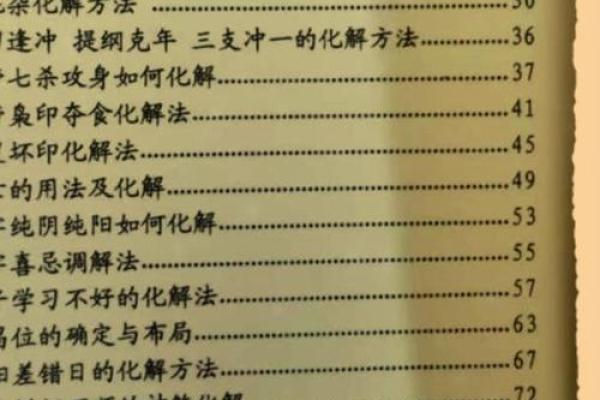 杂化解方法 30
逢冲 提纲克年 三支冲一的化解方法 36
七杀攻身如何化解 37
枭印夺食化解法 41
坏印化解法 45
的用法及化解 49
纯阴纯阳如何化解 53
喜忌调解法 55
学习不好的化解法 57
位的确定与布局 63
差错日的化解方法 67
72